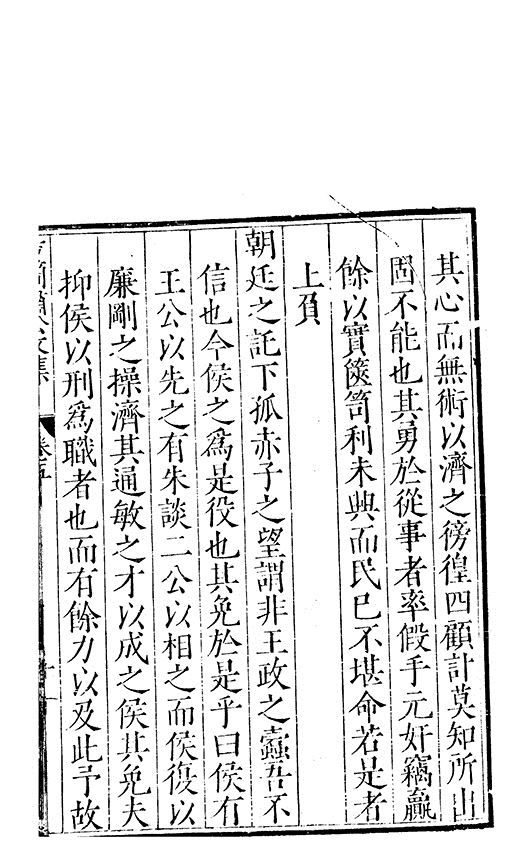 其心而無術以濟之徬徨四顧計莫知所出
固不能也其勇於從事者率假手元奸竊贏
餘以實篋笥利未興而民已不堪命若是者
上負
朝廷之託下孤赤子之望謂非王政之蠹吾不
信也今侯之爲是役也其免於是乎曰侯有
王公以先之有朱談二公以相之而侯復以
廉剛之操濟其通敏之才以成之侯其免夫
抑侯以刑爲職者也而有餘力以及此予故
文集
卷五